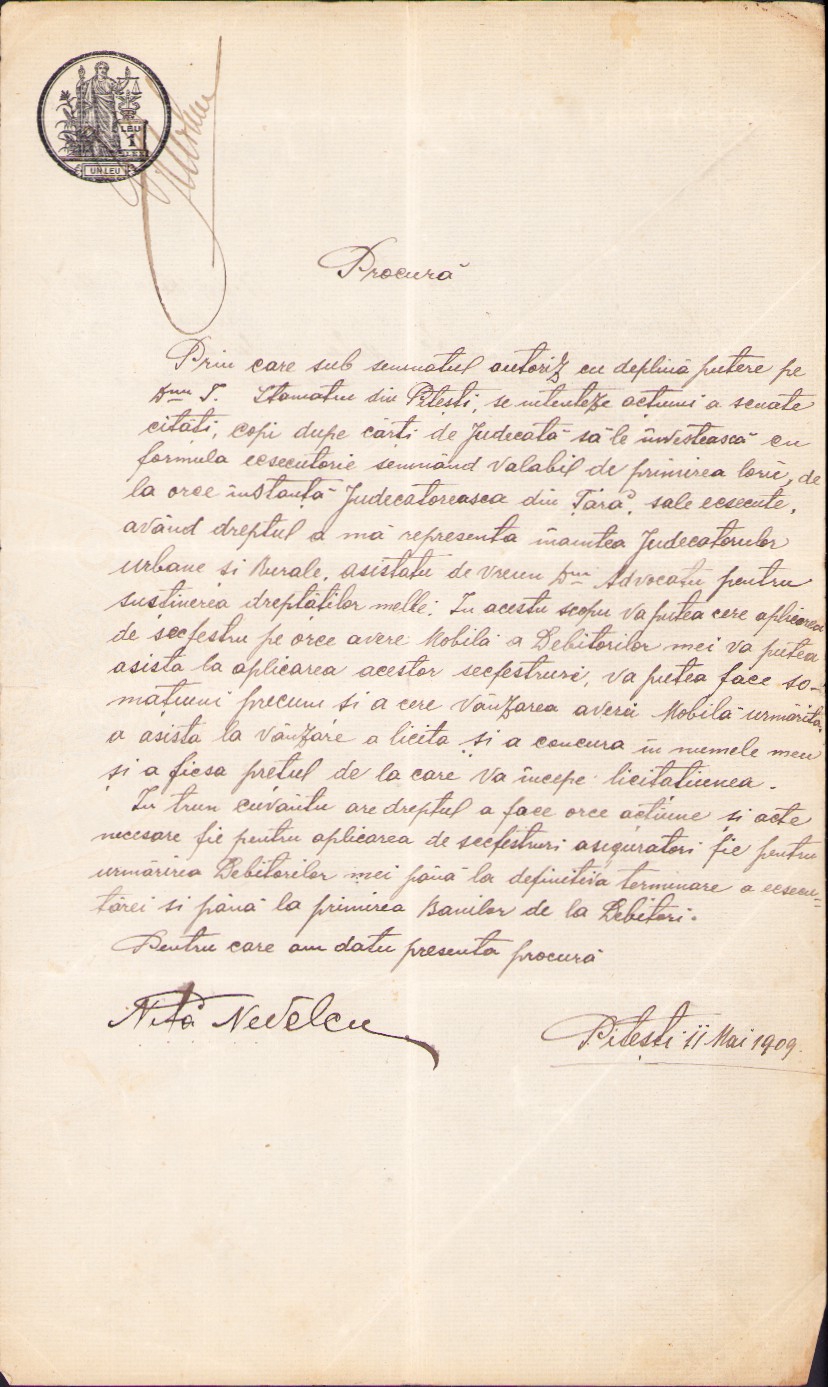 LEU
1
UN LEU
Procură
Prin care sub semnatul autoriz cu deplină putere pe
Dnu T. Stamatiu din Pitești, se intenteze acțiuni a scoate
cități, copi dupe cărți de Judecată să le învestească cu
formula ecsecutorie semnând valabil de primirea loru, de
la orce înstanță Judecatoreasca din Țară, sale ecsecute,
având dreptul a mă representa înaintea Judecatorulor
urbane si Rurale, asistatu de vreun Dnu Advocatu pentru
sustinerea dreptăților melle. In acestu scopu va putea cere aplicarea
de secfestru pe orce avere Mobilă a Debitorilor mei va putea
asista la aplicarea acestor secfestruri, va putea face so-
mațiuni precum si a cere vânzarea averei Mobilă urmărită
a asista la vânzare a licita și a concura în numele meu
și a ficsa prețul de la care va începe licitatiunea.
In trun cuvântu are dreptul a face orce acțiune și acte
necesare fie pentru aplicarea de secfestruri asiguratori fie pentru
urmărirea Debitorilor mei până la definitiva terminare a ecsecu=
tărei si până la primirea Banilor de la Debitori.
Pentru care am datu presenta procură
Niță Nedelcu
Pitești 11 Mai 1909.